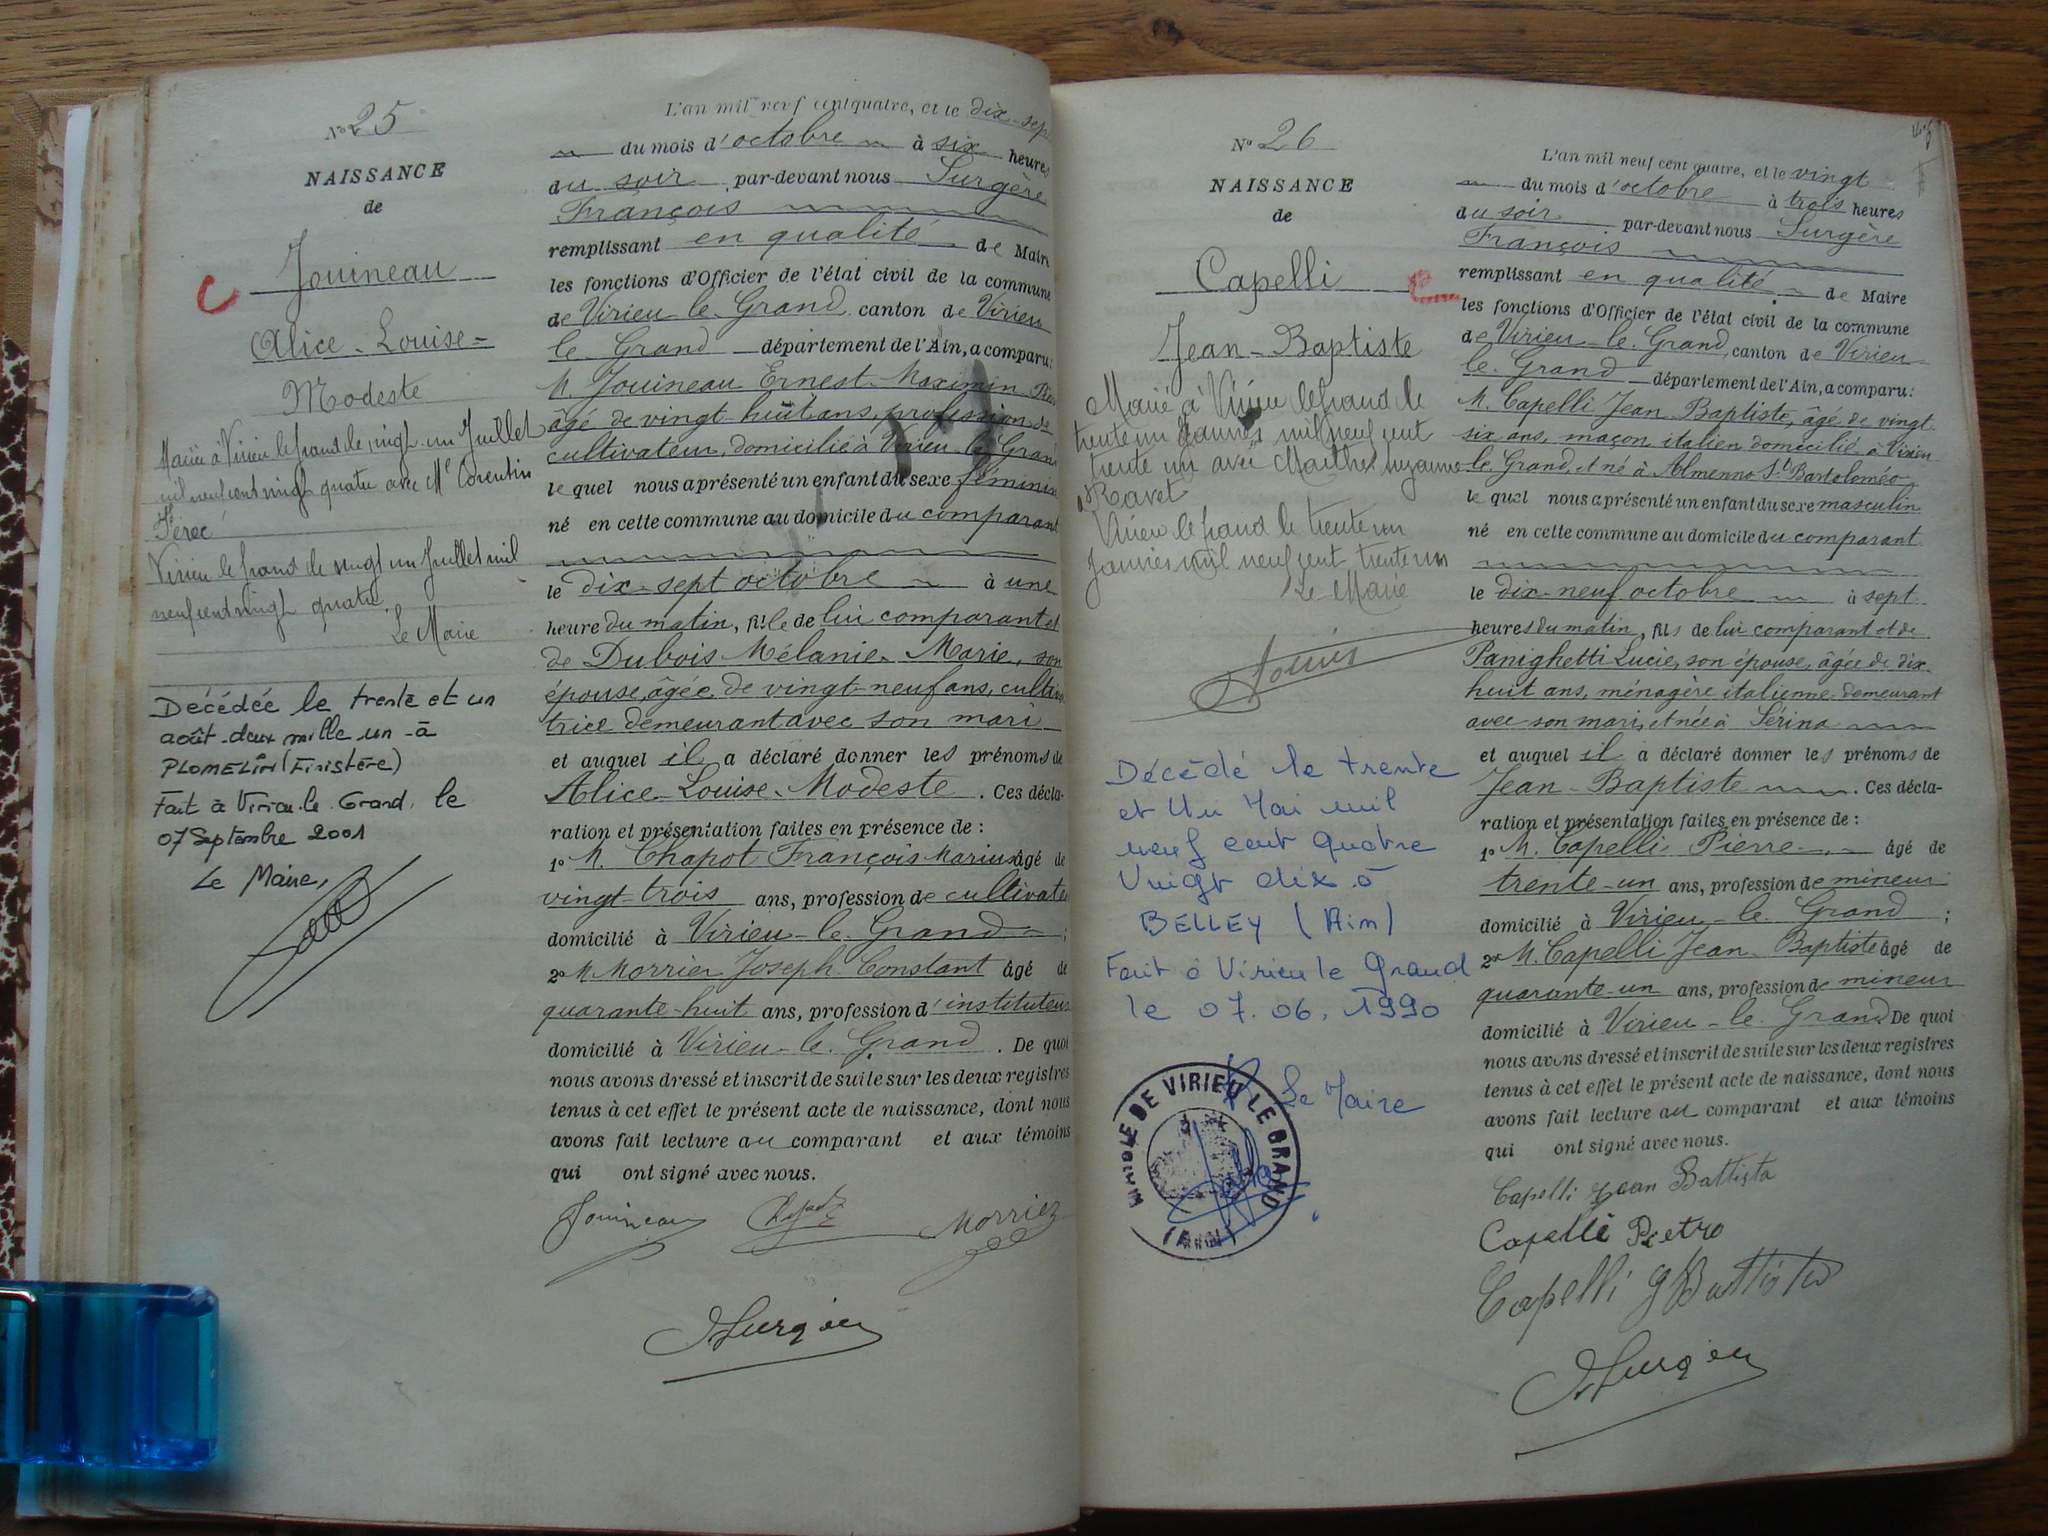 Nº 25
NAISSANCE
de
Jouineau
Alice-Louise-
Modeste
Mariée à Virieu le grand le vingt un Juillet
mil neuf cent vingt quatre avec Mr Corentin
Virieu le grand le vingt un Juillet mil
neuf cent vingt quatre
Le Maire
Décédée le trente et un
août deux mille un à
PLOMELIN (Finistère)
Fait à Virieu le Grand, le
07 Septembre 2001
Le Maire,
L'an mil neuf cent quatre, et le dix-sept
du mois d'octobre à six heures
du soir par-devant nous Surgère
François
remplissant en qualité de Maire
les fonctions d'Officier de l'état civil de la commune
de Virieu-le-Grand canton de Virieu
le Grand département de l'Ain, a comparu:
M. Jouineau Ernest-Maximin
âgé de vingt-huit ans, profession de
cultivateur, domicilié à Virieu-le-Grand
le quel nous a présenté un enfant du sexe féminin
né en cette commune au domicile du comparant
le dix-sept octobre à une
heure du matin, fille de lui comparant et
de Dubois Mélanie-Marie, son
épouse, âgée de vingt-neuf ans, cultiva
trice demeurant avec son mari
et auquel il a déclaré donner les prénoms de
Alice-Louise-Modeste. Ces décla-
ration et présentation faites en présence de :
1º M. Chapot François Marius âgé de
vingt-trois ans, profession de cultivateur
domicilié à Virieu-le-Grand ;
2º M. Morrier Joseph Constant âgé de
quarante-huit ans, profession d'instituteur
domicilié à Virieu-le-Grand. De quoi
nous avons dressé et inscrit de suite sur les deux registres
tenus à cet effet le présent acte de naissance, dont nous
avons fait lecture au comparant et aux témoins
qui ont signé avec nous.
Jouineau Chapot Morrier
Surgère
Nº 26
NAISSANCE
de
Capelli
Jean-Baptiste
Marié à Virieu le grand le
trente un Janvier mil neuf cent
trente un avec Marthe Suzanne
Ravet
Virieu le grand le trente un
Janvier mil neuf cent trente un
Le Maire
Décédé le trente
et Un Mai mil
neuf cent Quatre
Vingt dix à
BELLEY (Ain)
Fait à Virieu le Grand
le 07.06.1990
Le Maire
MAIRIE DE VIRIEU LE GRAND
(AIN)
L'an mil neuf cent quatre, et le vingt
du mois d'octobre à trois heures
du soir par-devant nous Surgère
François
remplissant en qualité de Maire
les fonctions d'Officier de l'état civil de la commune
de Virieu-le-Grand, canton de Virieu-
le-Grand département de l'Ain, a comparu :
M. Capelli Jean-Baptiste, âgé de vingt
six ans, maçon italien domicilié à Virieu
le Grand, et né à Almenno St Bartoloméo
le quel nous a présenté un enfant du sexe masculin
né en cette commune au domicile du comparant
le dix-neuf octobre à sept
heures du matin, fils de lui comparant et de
Panighetti Lucie, son épouse, âgée de dix-
huit ans, ménagère italienne demeurant
avec son mari, et née à Sérina
et auquel il a déclaré donner les prénoms de
Jean-Baptiste. Ces décla-
ration et présentation faites en présence de :
1º M. Capelli Pierre âgé de
trente-un ans, profession de mineur
domicilié à Virieu-le-Grand ;
2º M. Capelli Jean-Baptiste âgé de
quarante-un ans, profession de mineur
domicilié à Virieu-le-Grand De quoi
nous avons dressé et inscrit de suite sur les deux registres
tenus à cet effet le présent acte de naissance, dont nous
avons fait lecture au comparant et aux témoins
qui ont signé avec nous.
Capelli Jean Battista
Capelli Pietro
Capelli G Battista
Surgère